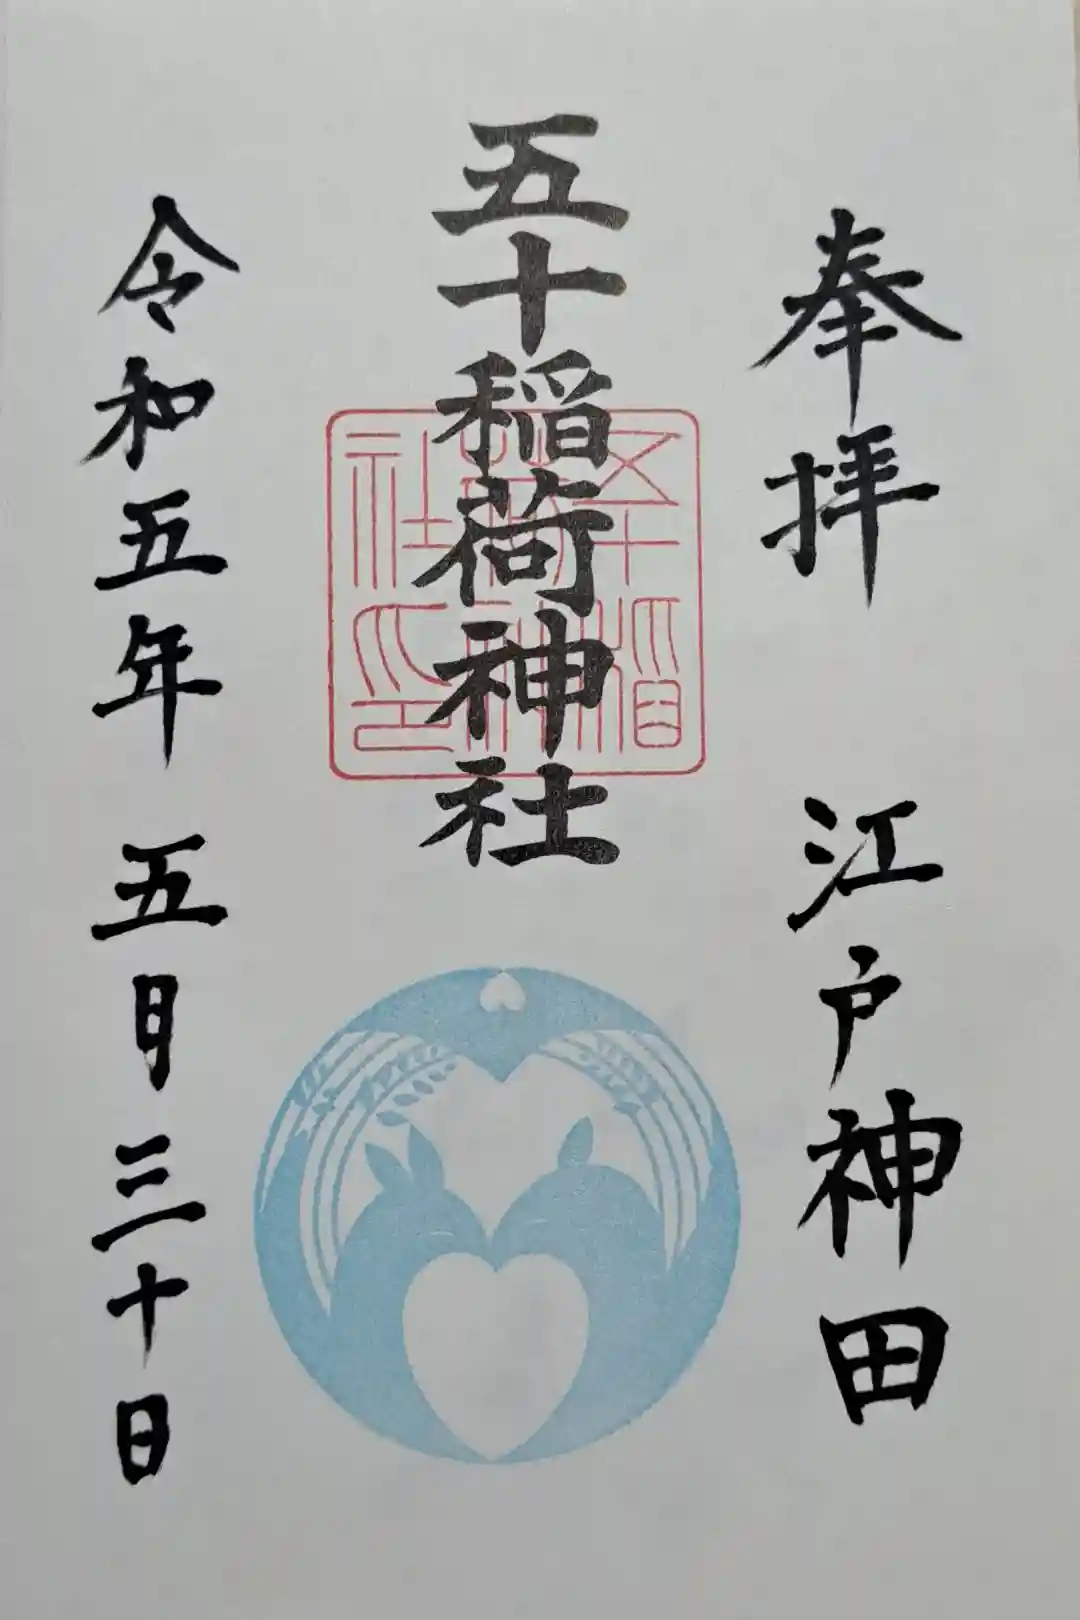 奉拝 江戸神田
五十稲荷神社
五十稲荷神社印
令和五年 五月三十日